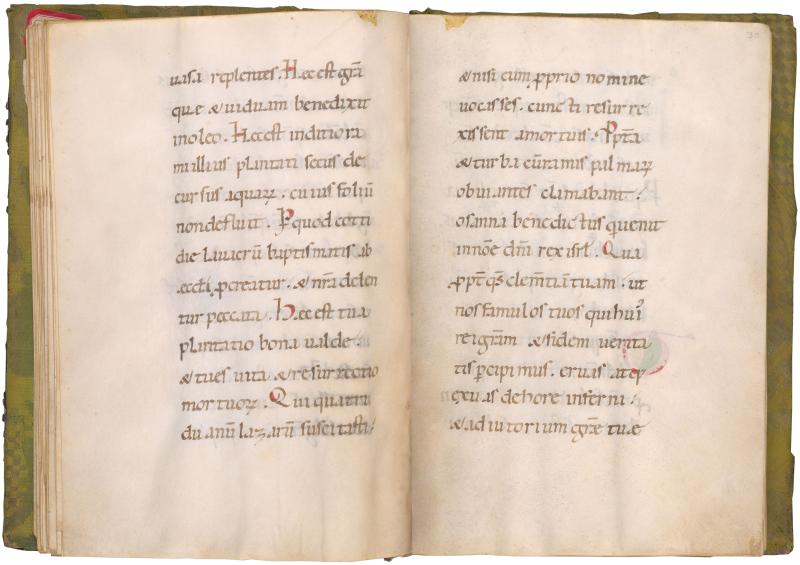 uasa replentes. Hec est gr̄a
que & uiduam benedixit
in oleo. Hec est inditio ra
mi illius plantati secus de
cursus aquaꝝ. cuius foliū
non defluit. P̲ quod cotti
die lauacrū baptismatis ab
ęccl̄i ꝓcreatur. & nr̄a delen
tur peccata. Hec est tua
plantatio bona ualde.
& tu es uita & resurrectio
mortuoꝝ. Qui quatri
duanū lazarū suscitasti.
30
& nisi eum ꝓprio nomine
uocasses. cuncti resurre
xissent a mortuis. Ppt̄a
& turba cū ramis palmaꝝ
obuiantes clamabant.
osanna benedictus qui uenit
in nōe dn̄i rex isrl̄. Qua
ꝓpt̄ qs̄ clem̄tiā tuam. ut
nos famulos tuos qui hui᾽
rei gr̄am & fidem uerita
tis percipimus. eruas a ter
&
uas de hore inferni.
& adiutorium gr̄ę tuę